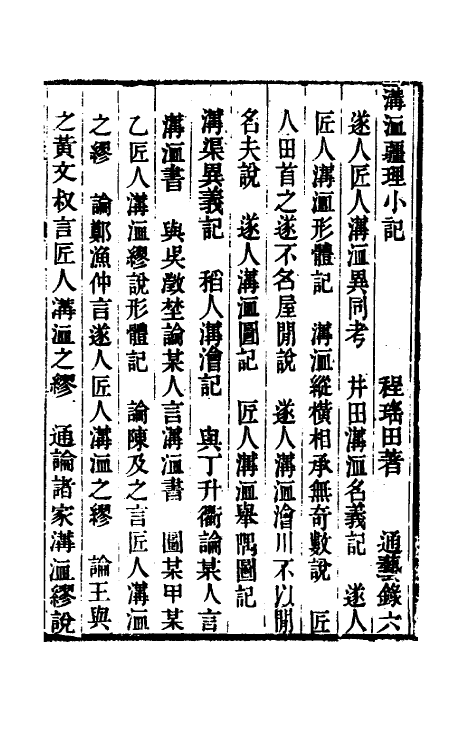 溝洫疆理小記 程瑤田著 通藝錄六
遂人匠人溝洫異同考 井田溝洫名義記 遂人
匠人溝洫形體記 溝洫縱橫相承無奇數說 匠
人田首之遂不名屋閒說 遂人溝洫澮川不以閒
名夫說 遂人溝洫圖記 匠人溝洫舉隅圖記
溝渠異義記 稻人溝澮記 與丁升衢論某人言
溝洫書 與吳澂埜論某人言溝洫書 圖某甲某
乙匠人溝洫繆說形體記 論陳及之言匠人溝洫
之繆 論鄭漁仲言遂人匠人溝洫之繆 論王與
之黃文叔言匠人溝洫之繆 通論諸家溝洫繆說